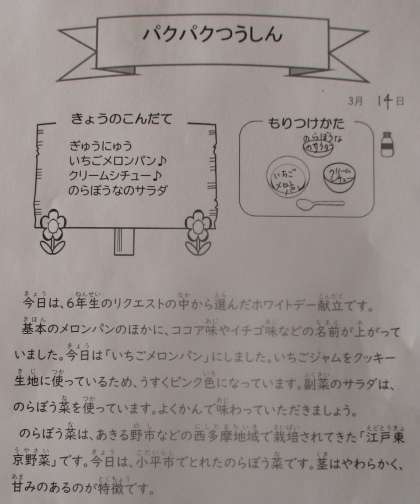 パクパクつうしん
3月 14日
きょうのこんだて
ぎゅうにゅう
いちごメロンパン♪
クリームシチュー♪
のらぼうなのサラダ
もりつけかた
のらぼうな
のサラダ
いちご
メロンパン
クリーム
シチュー
今日は、6年生のリクエストの中から選んだホワイトデー献立です。
基本のメロンパンのほかに、ココア味やイチゴ味などの名前が上がって
いました。今日は「いちごメロンパン」にしました。いちごジャムをクッキー
生地に使っているため、うすくピンク色になっています。副菜のサラダは、
のらぼう菜を使っています。よくかんで味わっていただきましょう。
のらぼう菜は、あきる野市などの西多摩地域で栽培されてきた「江戸東
京野菜」です。今日は、小平市でとれたのらぼう菜です。茎はやわらかく、
甘みのあるのが特徴です。